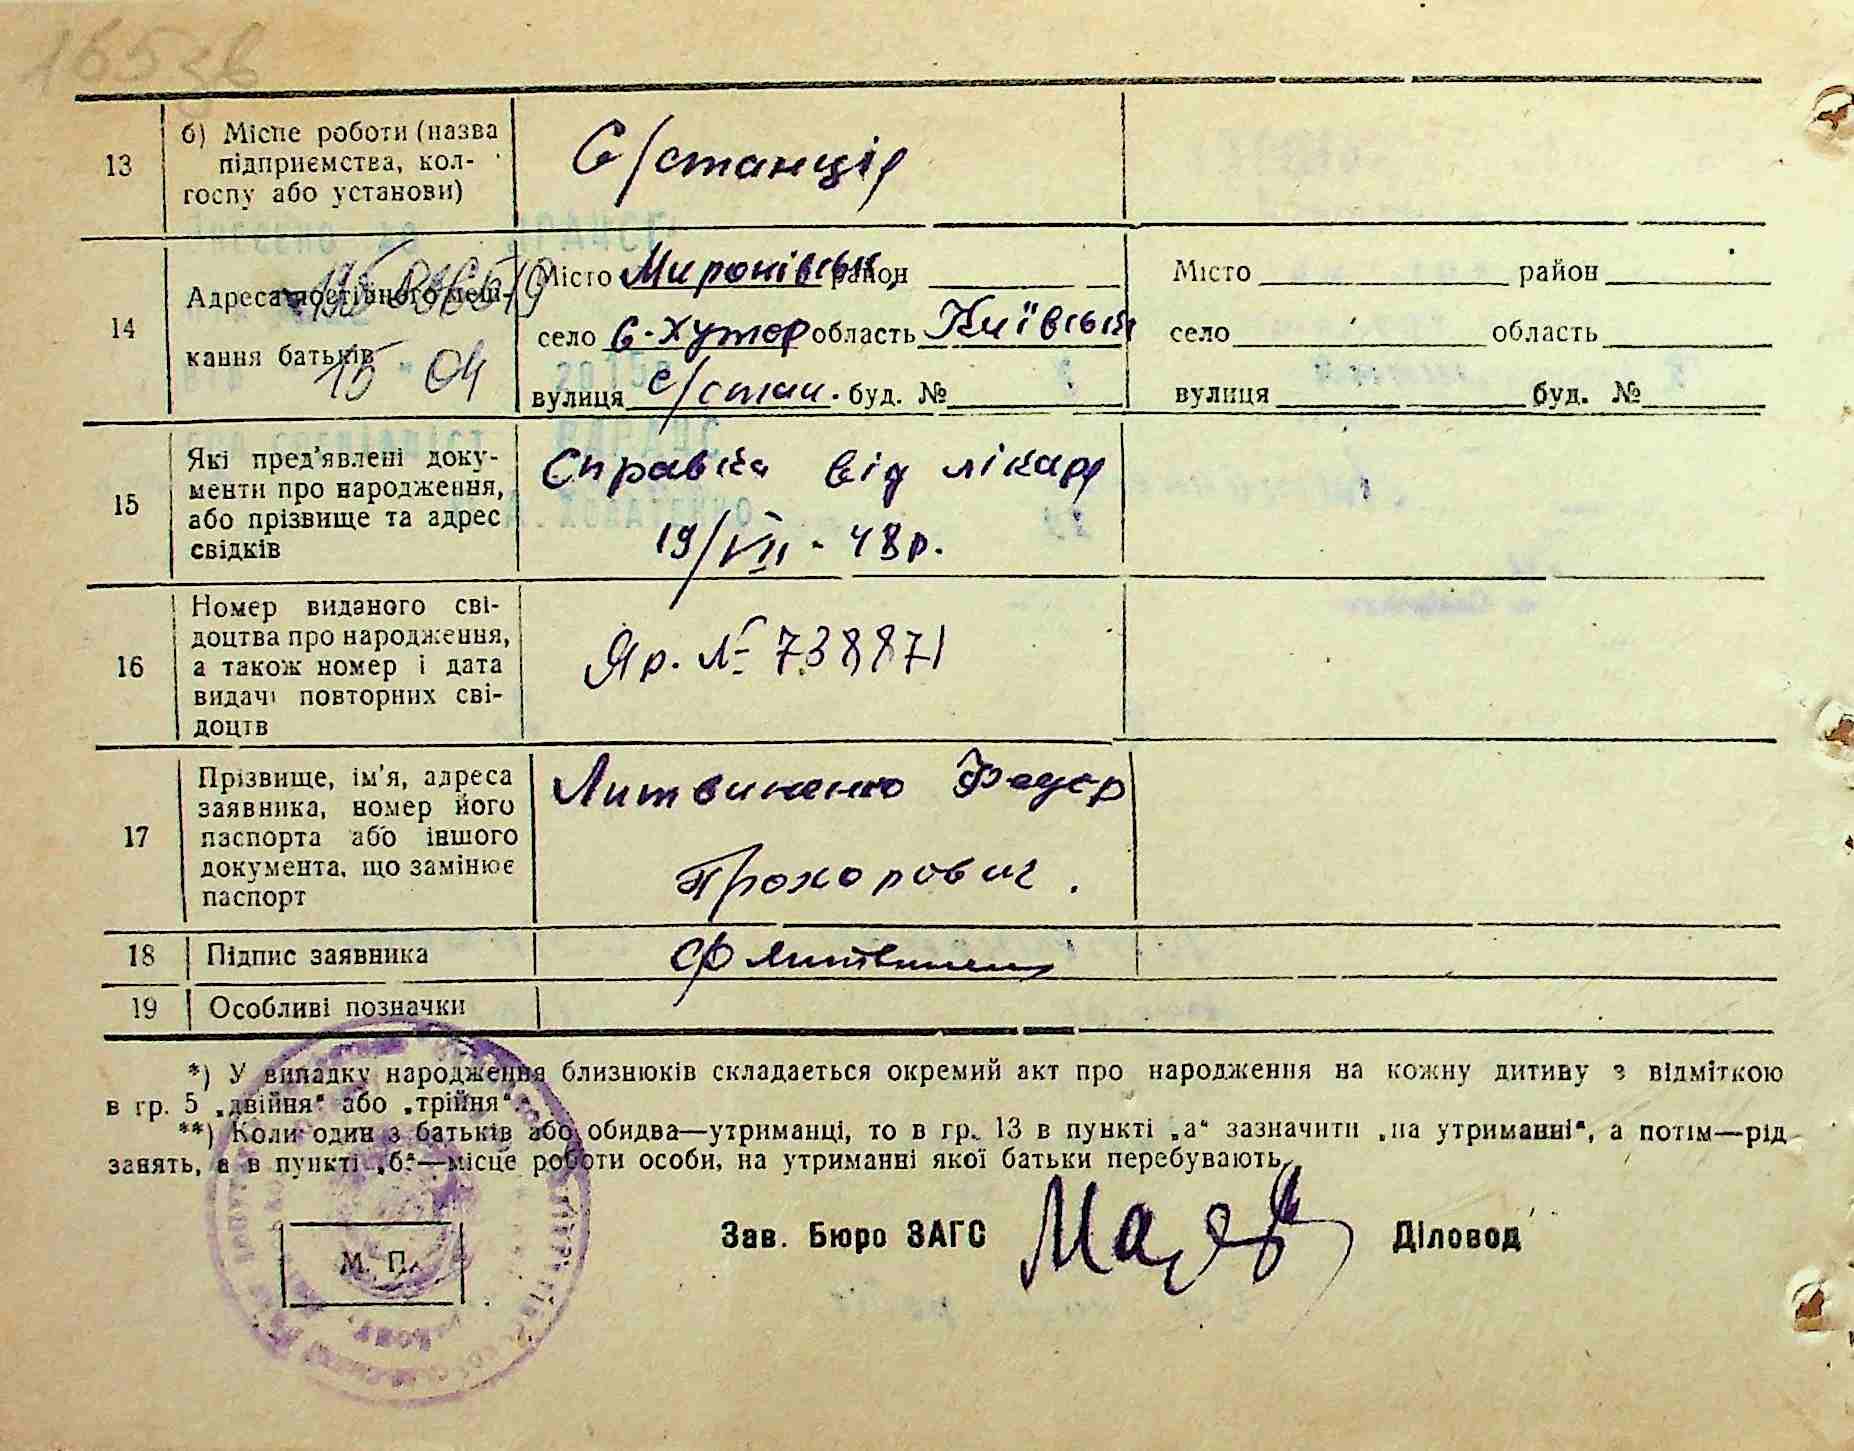 165зв
13
б) Місце роботи (назва
підприємства, кол-
госпу або установи)
С/станція
14
Адреса постійного меш-
кання батьків
15 04
Місто Миронівськ, район
село С-Хутор область Київськ
вулиця с/стан. буд. №
Місто район
село область
вулиця буд. №
15
Які пред'явлені доку-
менти про народження,
або прізвище та адрес
свідків
Справка від лікаря
19/VII - 48р.
16
Номер виданого сві-
доцтва про народження,
а також номер і дата
видачі повторних сві-
доцтв
Яр. № 738871
17
Прізвище, ім'я, адреса
заявника, номер його
паспорта або іншого
документа, що замінює
паспорт
Литвиненко Федор
Прохорович.
18
Підпис заявника
19
Особливі позначки
*) У випадку народження близнюків складається окремий акт про народження на кожну дитину з відміткою
в гр. 5 „двійня" або „трійня".
**) Коли один з батьків або обидва—утриманці, то в гр. 13 в пункті „а" зазначити „на утриманні", а потім—рід
занять, а в пункті „б"—місце роботи особи, на утриманні якої батьки перебувають.
М. П.
Зав. Бюро ЗАГС
Діловод